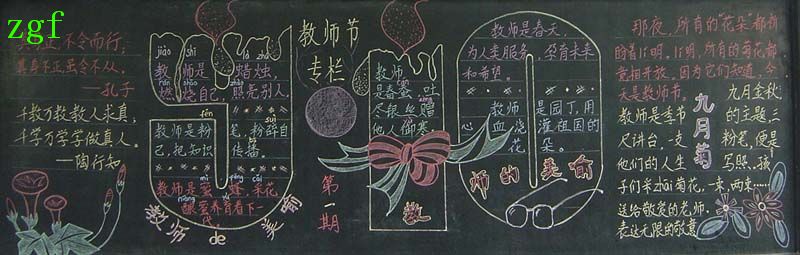 zgf
其身正,不令而行;
其身不正,虽令不从。
——孔子
千教万教教人求真,
千学万学学做真人。
——陶行知
jiào shī là zhú
教师是 蜡烛,
燃烧自己, 照亮别人。
fěn
教师是粉 笔,粉碎自
己,把知识 传播。
教师是蜜 蜂,采花
酿蜜养育着下一
代。
教师 de 美喻
教师节
专栏
第一期
教师
是春蚕,吐
尽银丝赠
他人御寒
教
师的美喻
教师是春天,
为人类服务,孕育未来
和希望。
教师 是园丁,用
心血 浇 灌祖国的
花 朵。
那夜,所有的“花朵”都
竞相开放,因为它们知道,今
天是教师节。
九月菊
九月金秋,
教师是季节 的主题,三
尺讲台,一支 粉笔,便是
他们的人生 写照。孩
子们采zhāi菊花,一束,两束……
送给敬爱的老师,
表达无限的敬意